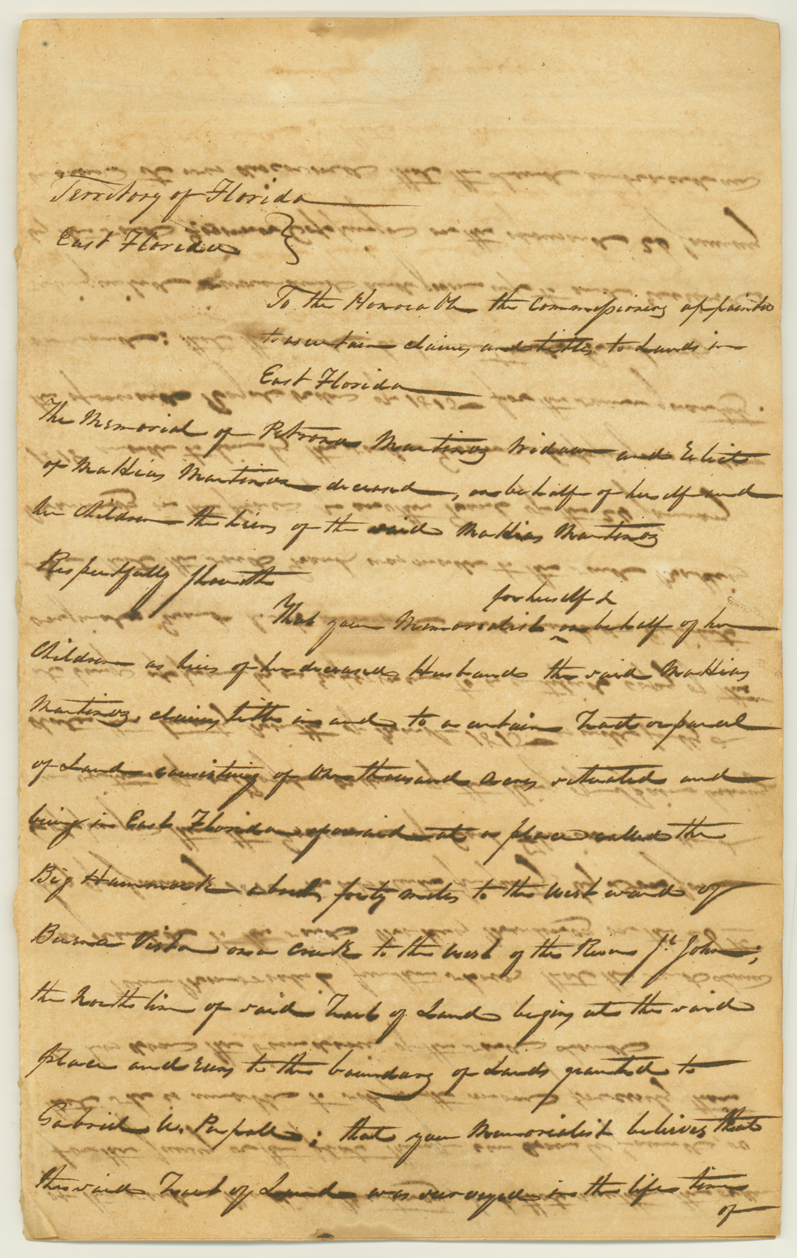 Territory of Florida
East Florida }
To the Honorable the Commissioners appointed
to ascertain claims and titles to Lands in
East Florida
The Memorial of Petrona Martinez Widow and Relict
of Mathias Martinez deceased, on behalf of herself and
her Children the heirs of the said Mathias Martinez
Respectfully Sheweth
for herself &
That your Memorialist on behalf of her
Children as heirs of her deceased Husband the said Mathias
Martinez, claims title in and to a certain Tract or parcel
of Land consisting of One thousand Acres situated and
being in East Florida aforesaid at a place called the
Big Hammock about forty miles to the West ward of
Buena Vista on a Creek to the West of the River St. Johns,
the North line of said Tract of Land begins at the said
place and runs to the boundary of Lands granted to
Gabriel W. Perpall; that your Memorialist believes that
the said Tract of Land was surveyed in the life time
of